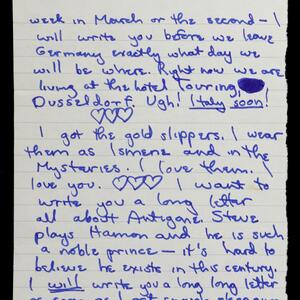 week in March or the second - I
will write you before we leave
Germany exactly what day we
will be where. Right now we are
living at the hotel Touring
Dusseldorf. Ugh! Italy soon!
I got the gold slippers. I wear
them as Ismene and in the
Mysteries. I love them. I
love you. I want to
write you a long letter
all about Antigone. Steve
plays Hamon and he is such
a noble prince - it's hard to
believe he exists in this century.
I will write you a long long letter
as soon as I get some